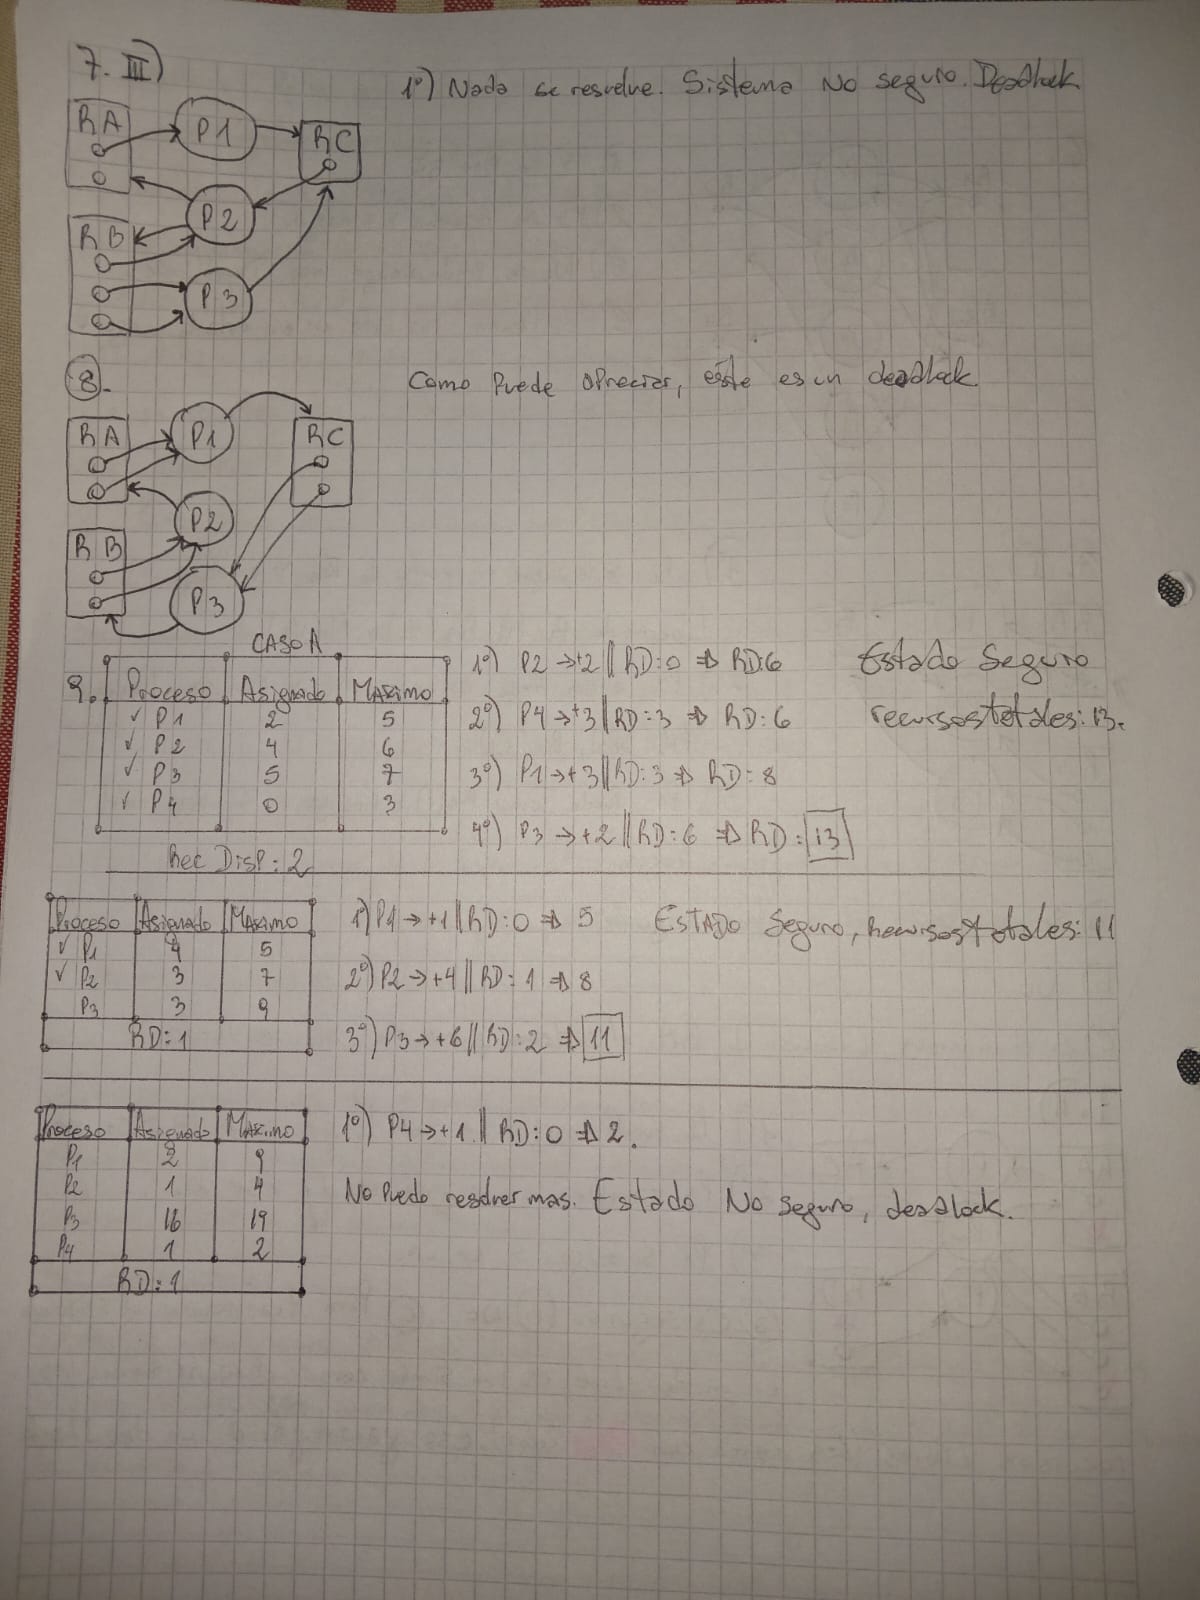 7. III)
1º) Nada se resuelve. Sistema No seguro. Deadlock
RA P1 RC
P2
RB
P3
8.
Como Puede apreciar, éste es un deadlock
RA P1 RC
P2
RB
P3
CASO A
9.
Proceso Asignado Maximo
✓ P1 2 5
✓ P2 4 6
✓ P3 5 7
✓ P4 0 3
Rec Disp: 2
1º) P2 → +2 || RD: 0 ⇒ RD: 6
2º) P4 → +3 || RD = 3 ⇒ RD: 6
3º) P1 → +3 || RD: 3 ⇒ RD: 8
4º) P3 → +2 || RD: 6 ⇒ RD: 13
Estado Seguro
recursos totales: 13.
Proceso Asignado Maximo
✓ P1 4 5
✓ P2 3 7
P3 3 9
RD: 1
1º) P1 → +1 || RD: 0 ⇒ 5
2º) P2 → +4 || RD: 1 ⇒ 8
3º) P3 → +6 || RD: 2 ⇒ 11
ESTADO Seguro, Recursos totales: 11
Proceso Asignado Maximo
P1 2 9
P2 1 4
P3 16 19
P4 1 2
RD: 1
1º) P4 → +1 || RD: 0 ⇒ 2.
No Puedo resolver mas. Estado No Seguro, deadlock.